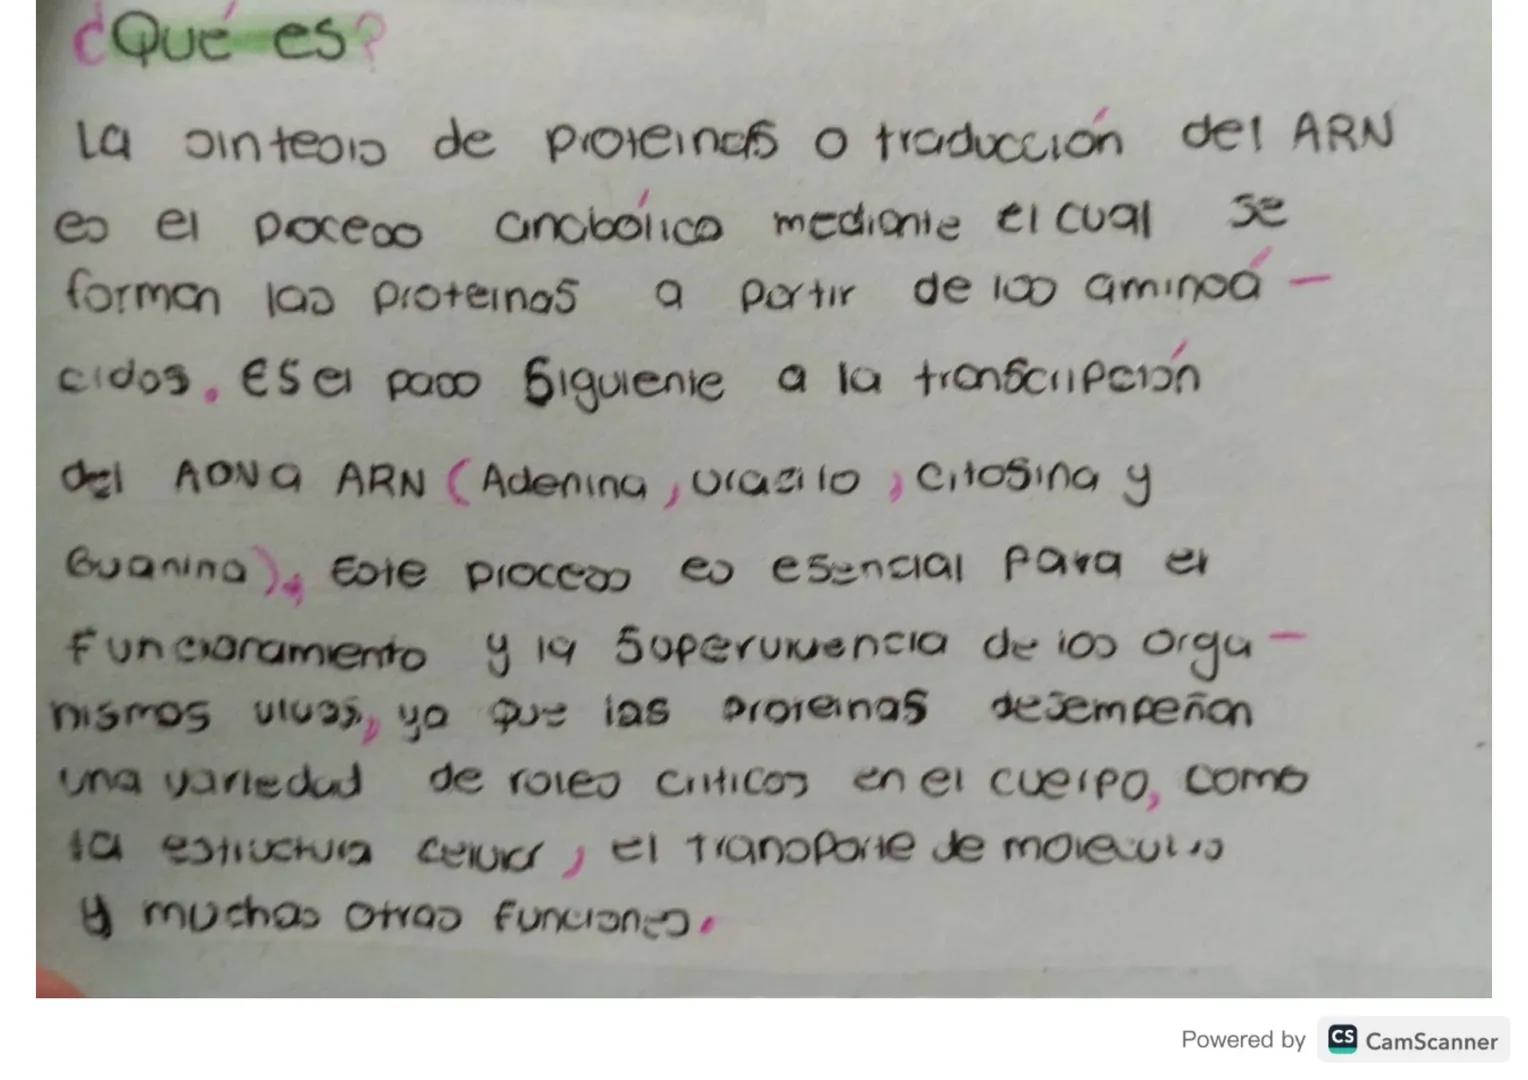 ¿Qué es?
La sintesis de proteinas o traducción del ARN
es el poceso anabólico mediante el cual se
forman las proteinas a partir de los aminoá-
cidos. Es el paso siguiente a la transcripción
del ADN a ARN (Adenina, uracilo, citosina y
Guanina). Este proceso es esencial para el
funcionamiento y la supervivencia de los orga-
nismos vivos, ya que las proteinas desempeñan
una variedad de roles criticos en el cuerpo, como
la estructura celular, el transporte de moleculas
y muchas otras funciones.
Powered by CS CamScanner